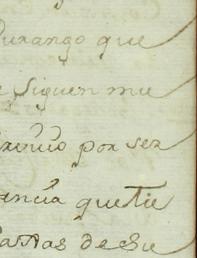 Durango que
siguen mu
por ser
ancia que tie
Cartas de Su